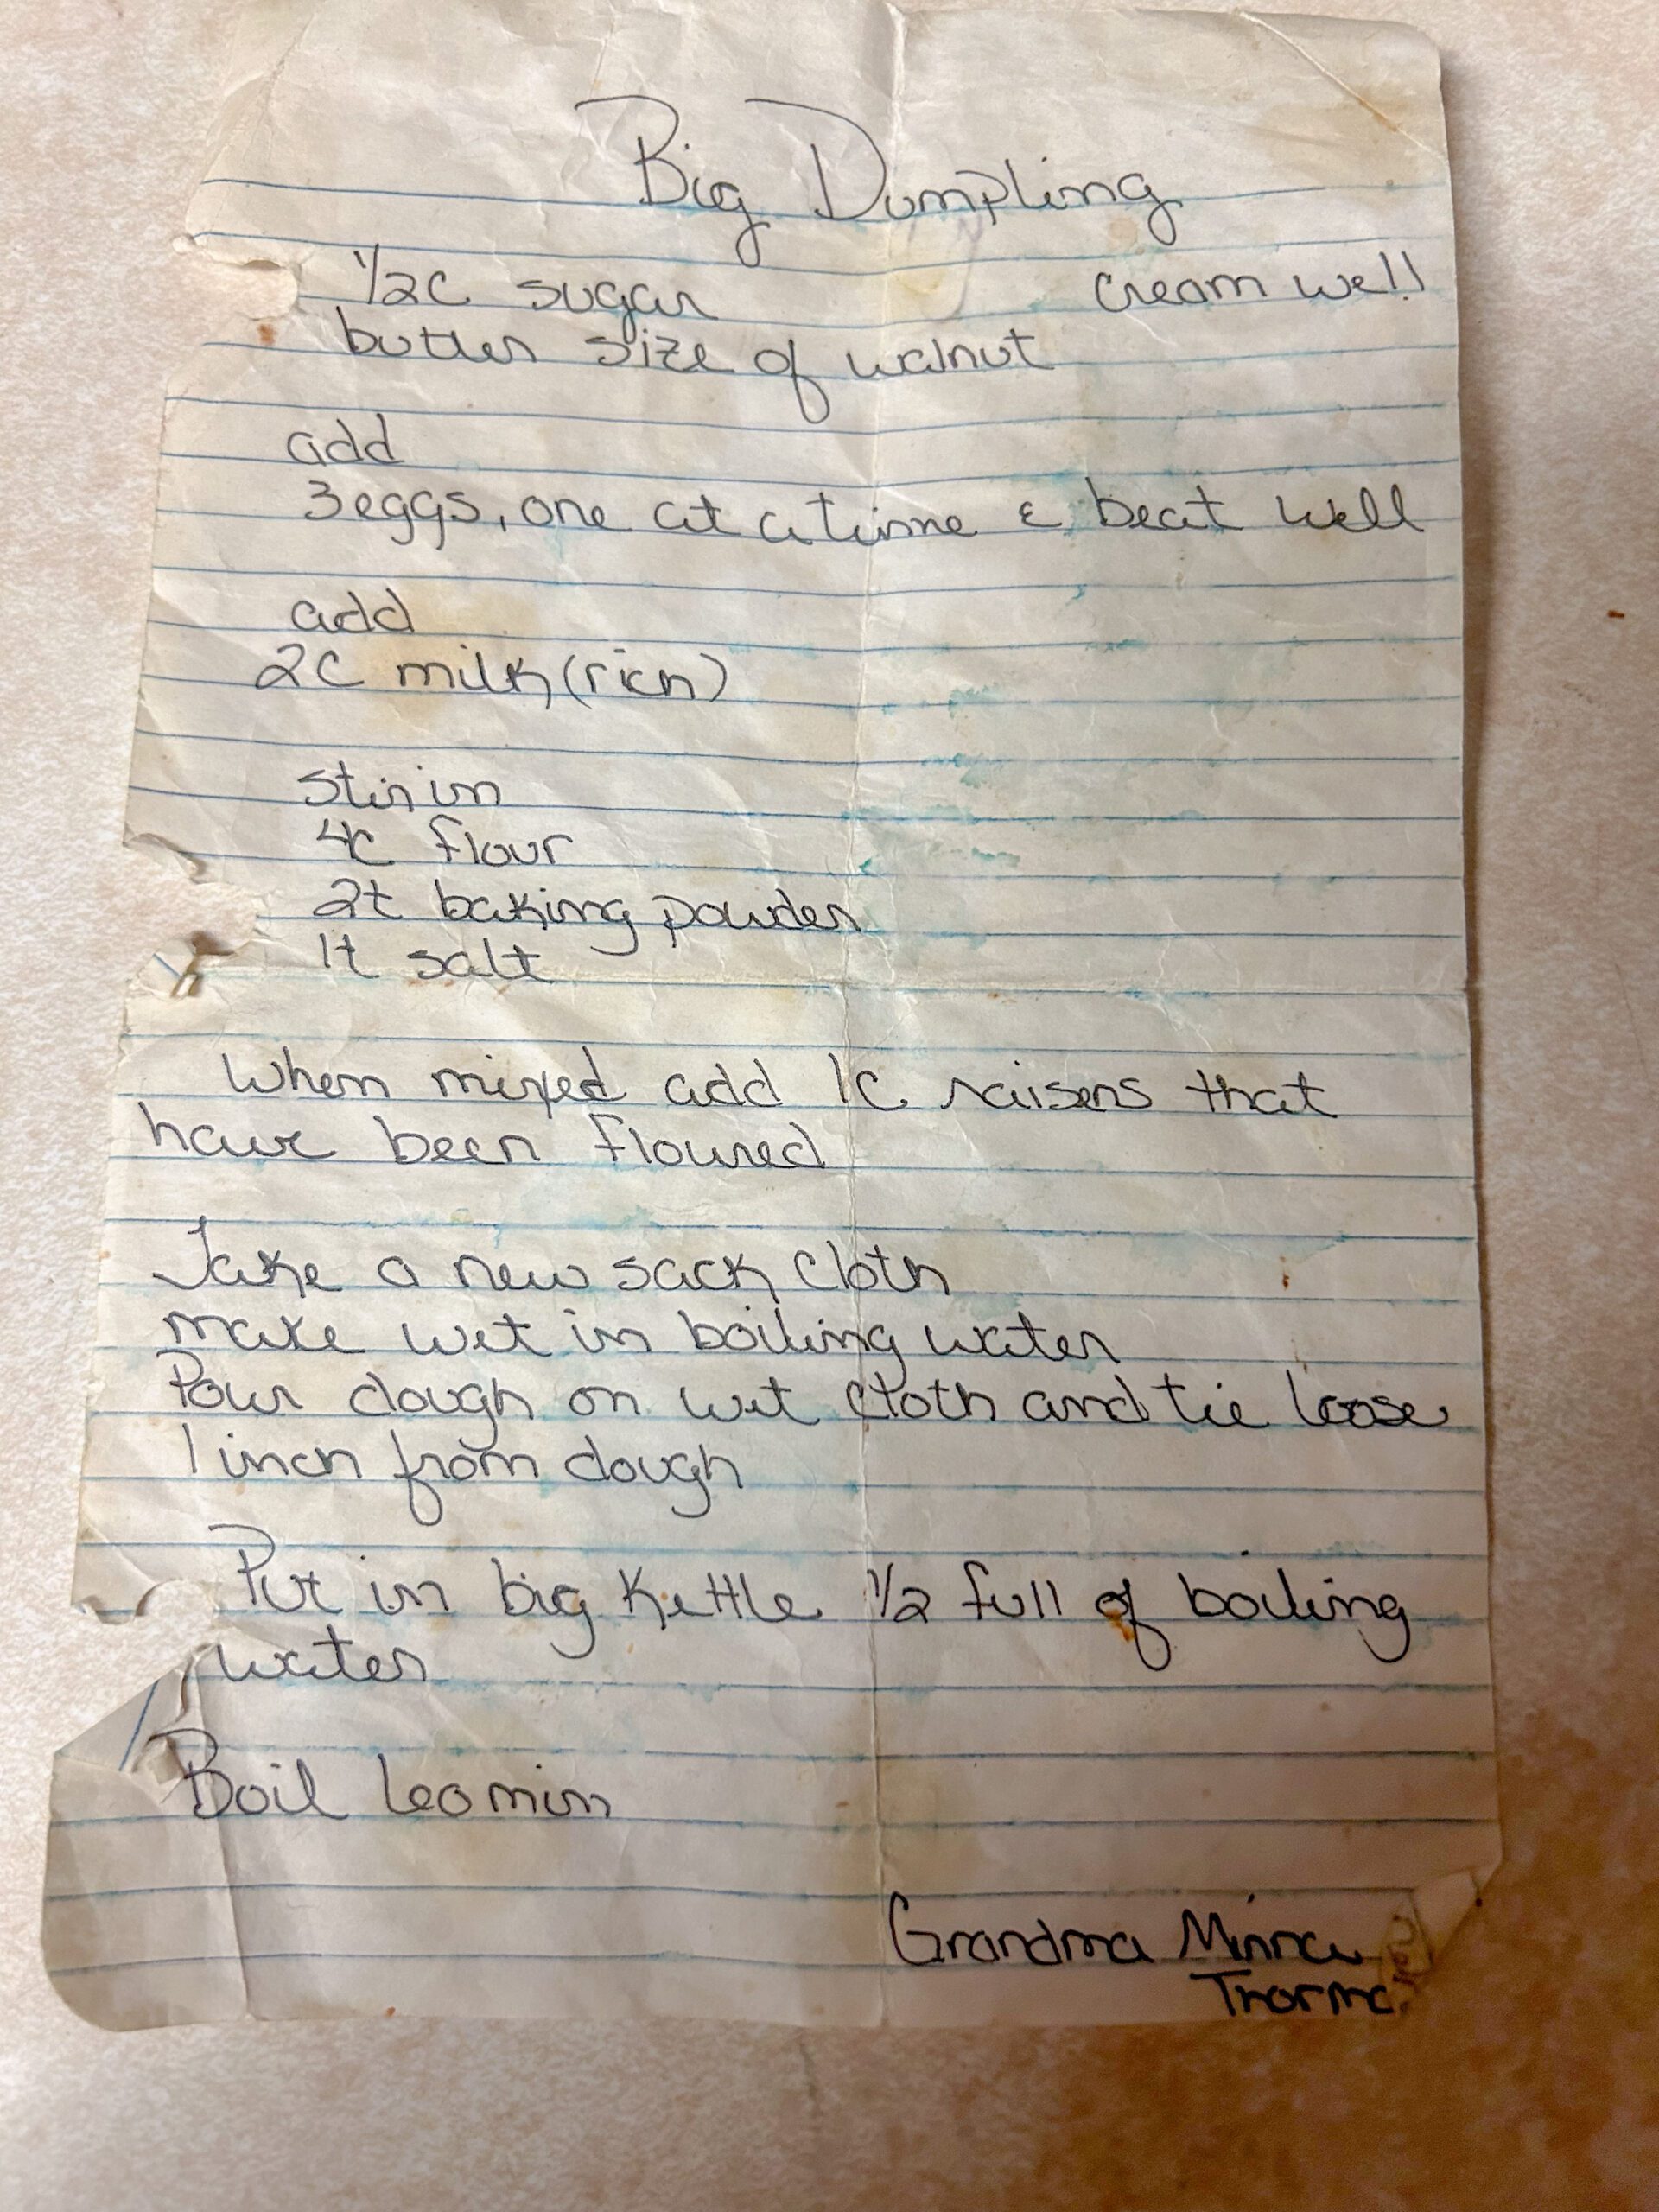 Big Dumpling
1/2c sugar cream well
butter size of walnut
add
3 eggs, one at a time & beat well
add
2c milk (rich)
stir in
4c flour
2t baking powder
1t salt
When mixed add 1c raisens that
have been floured
Take a new sack cloth
make wet in boiling water
Pour dough on wet cloth and tie loose
1 inch from dough
Put in big kettle 1/2 full of boiling
water
Boil 60 min
Grandma Minna